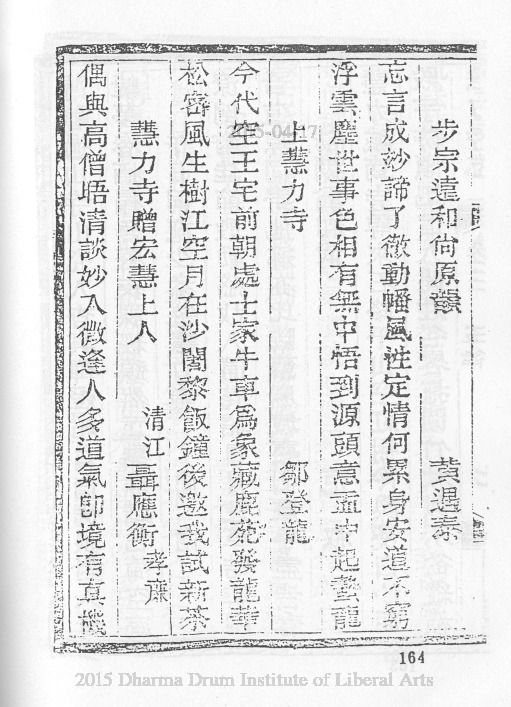 步宗遠和尚原韻 黃遇泰
忘言成妙諦了徹動幡風性定情何累身安道不窮
浮雲塵世事色相有無中悟到源頭意盂中起蟄龍
上慧力寺 鄒登龍
今代空王宅前朝處士家牛車為象藏鹿苑發龍華
松密風生樹江空月在沙闍黎飯鐘後邀我試新茶
慧力寺贈宏慧上人 清江 聶應衡 孝廉
偶與高僧晤清談妙入微逢人多道氣即境有真機
164
2015 Dharma Drum Institute of Liberal Arts